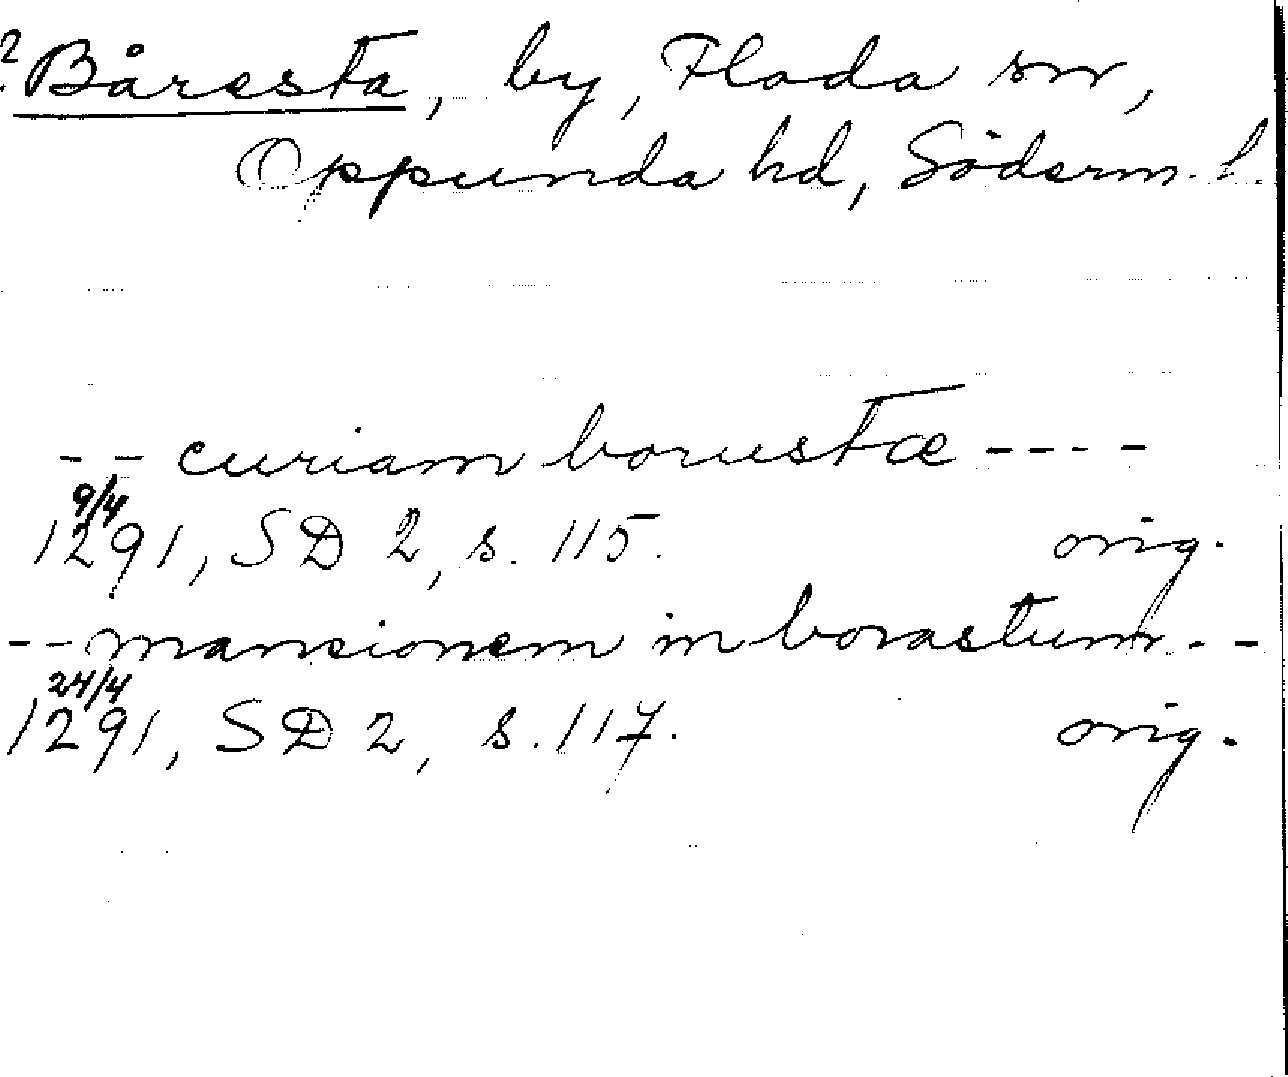 ? Båresta, by, Floda sn,
Oppunda hd, Söderm. l.
-- curiam borustæ ----
9/4
1291, SD 2, s. 115. orig.
-- mansionem in borastum --
24/4
1291, SD 2, s. 117. orig.